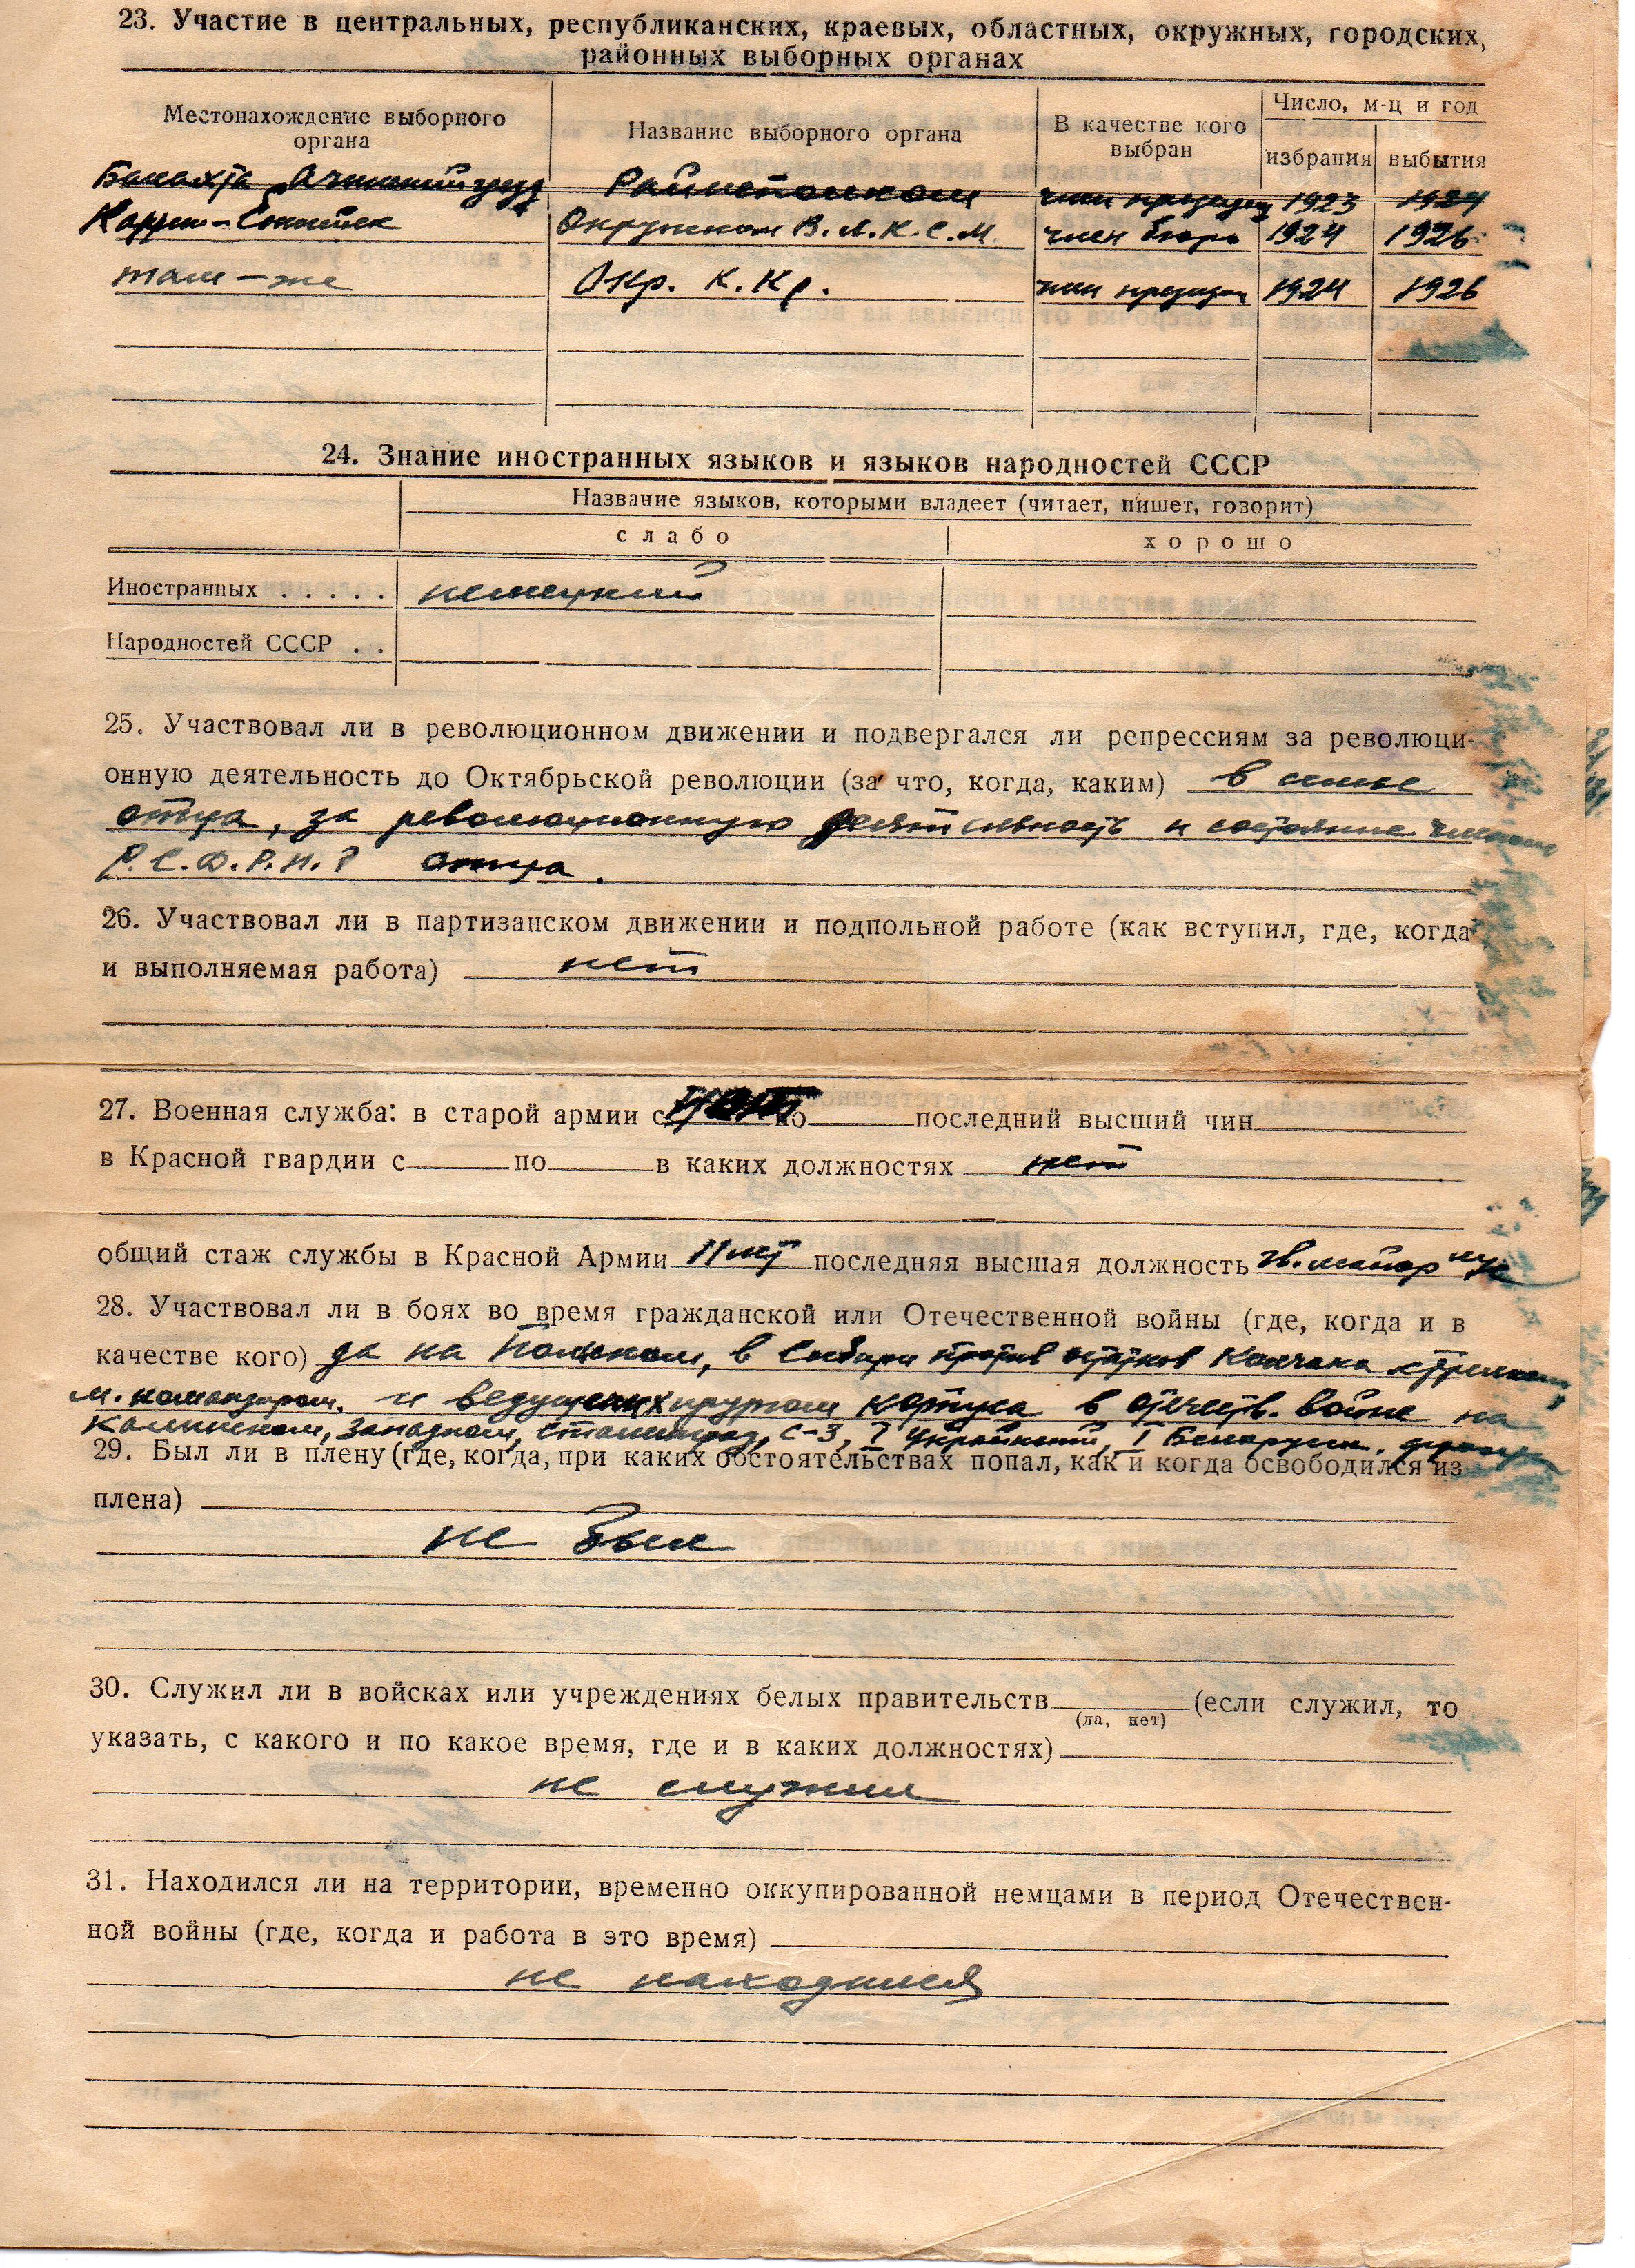 23. Участие в центральных, республиканских, краевых, областных, окружных, городских,
районных выборных органах
Местонахождение выборного органа
Название выборного органа
В качестве кого выбран
Число, м-ц и год
избрания
выбытия
Балахта Ачинский уезд Райисполком член президиу 1923 1924
Окружком В.Л.К.С.М. член бюро 1924 1926
там-же Окр. К.Кр. член президиу 1924 1926
24. Знание иностранных языков и языков народностей СССР
Название языков, которыми владеет (читает, пишет, говорит)
слабо хорошо
Иностранных . . . . . немецкий
Народностей СССР . .
25. Участвовал ли в революционном движении и подвергался ли репрессиям за революци-
онную деятельность до Октябрьской революции (за что, когда, каким) в семье
отца, за революционную деятельность и состояние членом
Р.С.Д.Р.П. отца.
26. Участвовал ли в партизанском движении и подпольной работе (как вступил, где, когда
и выполняемая работа) нет
27. Военная служба: в старой армии с по последний высший чин
в Красной гвардии с по в каких должностях нет
общий стаж службы в Красной Армии 11 лет последняя высшая должность гв. майор м/с
28. Участвовал ли в боях во время гражданской или Отечественной войны (где, когда и в
качестве кого) да на Польском, в Сибири против остатков Колчака стрелком,
м. командиром. и ведущим хирургом корпуса в отечеств. войне на
Калининском, Западном, Сталинград, С-З, I Украинский, I Белорусск.
29. Был ли в плену (где, когда, при каких обстоятельствах попал, как и когда освободился из
плена)
не был
30. Служил ли в войсках или учреждениях белых правительств (если служил, то
(да, нет)
указать, с какого и по какое время, где и в каких должностях)
не служил
31. Находился ли на территории, временно оккупированной немцами в период Отечествен-
ной войны (где, когда и работа в это время)
не находился